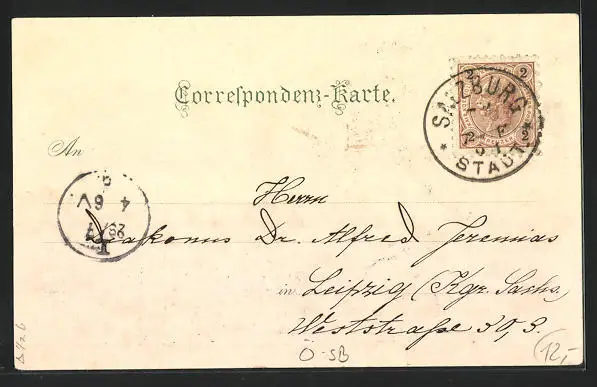 Correspondenz-Karte.
2 2
SALZBURG
2 2
STADT
An
Herrn
Diakonus Dr. Alfred Jeremias
in Leipzig (Kgr. Sachs.
Weststraße 30, 3.
Ö-SB
12,-